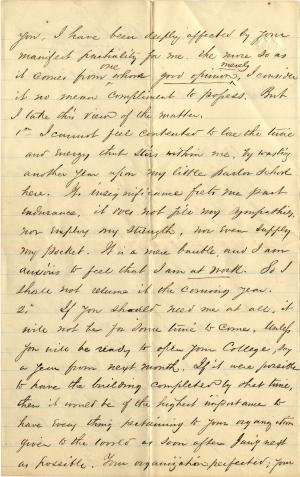 you, I have been deeply affected by your
manifest partiality for me. the more so as
it comes from one whose good opinion merely, I consider
it no mean compliment to possess. But
I take this view of the matter.
1st I cannot feel contented to lose the time
and energy that stirs within me, by wasting
another year upon my little parlor school
here. Its insignificance frets me past
endurance, it does not fill my sympathies,
nor employ my strength, nor even supply
my pocket. It is a mere bauble, and I am
anxious to feel that I am at work. So I
shall not return it the coming year.
2d If you should need me at all, it
will not be for some time to come, unless
you will be ready to open your College, say
a year from next month. If it were possible
to have the building completed by that time,
then it would be of the highest importance to
have every thing pertaining to your organization
given to the world as soon after next
as possible. Your organization perfected, your